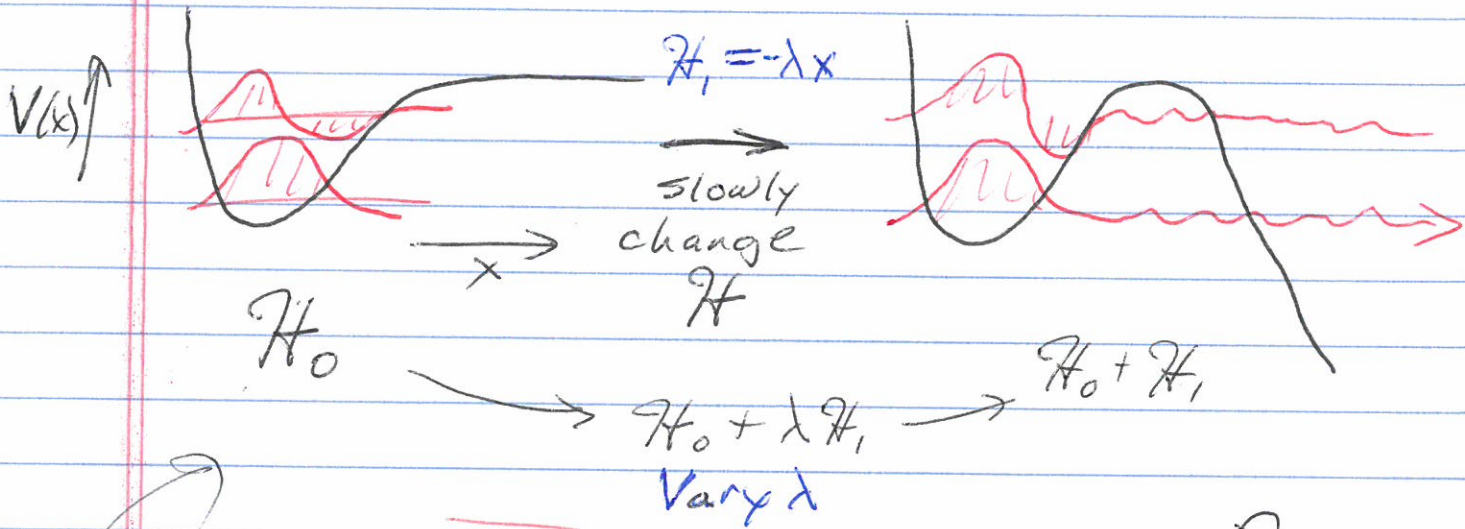 V(x)
ℋ₁ = -λx
slowly
change
ℋ
x
ℋ₀
ℋ₀ + λℋ₁
ℋ₀ + ℋ₁
Vary λ